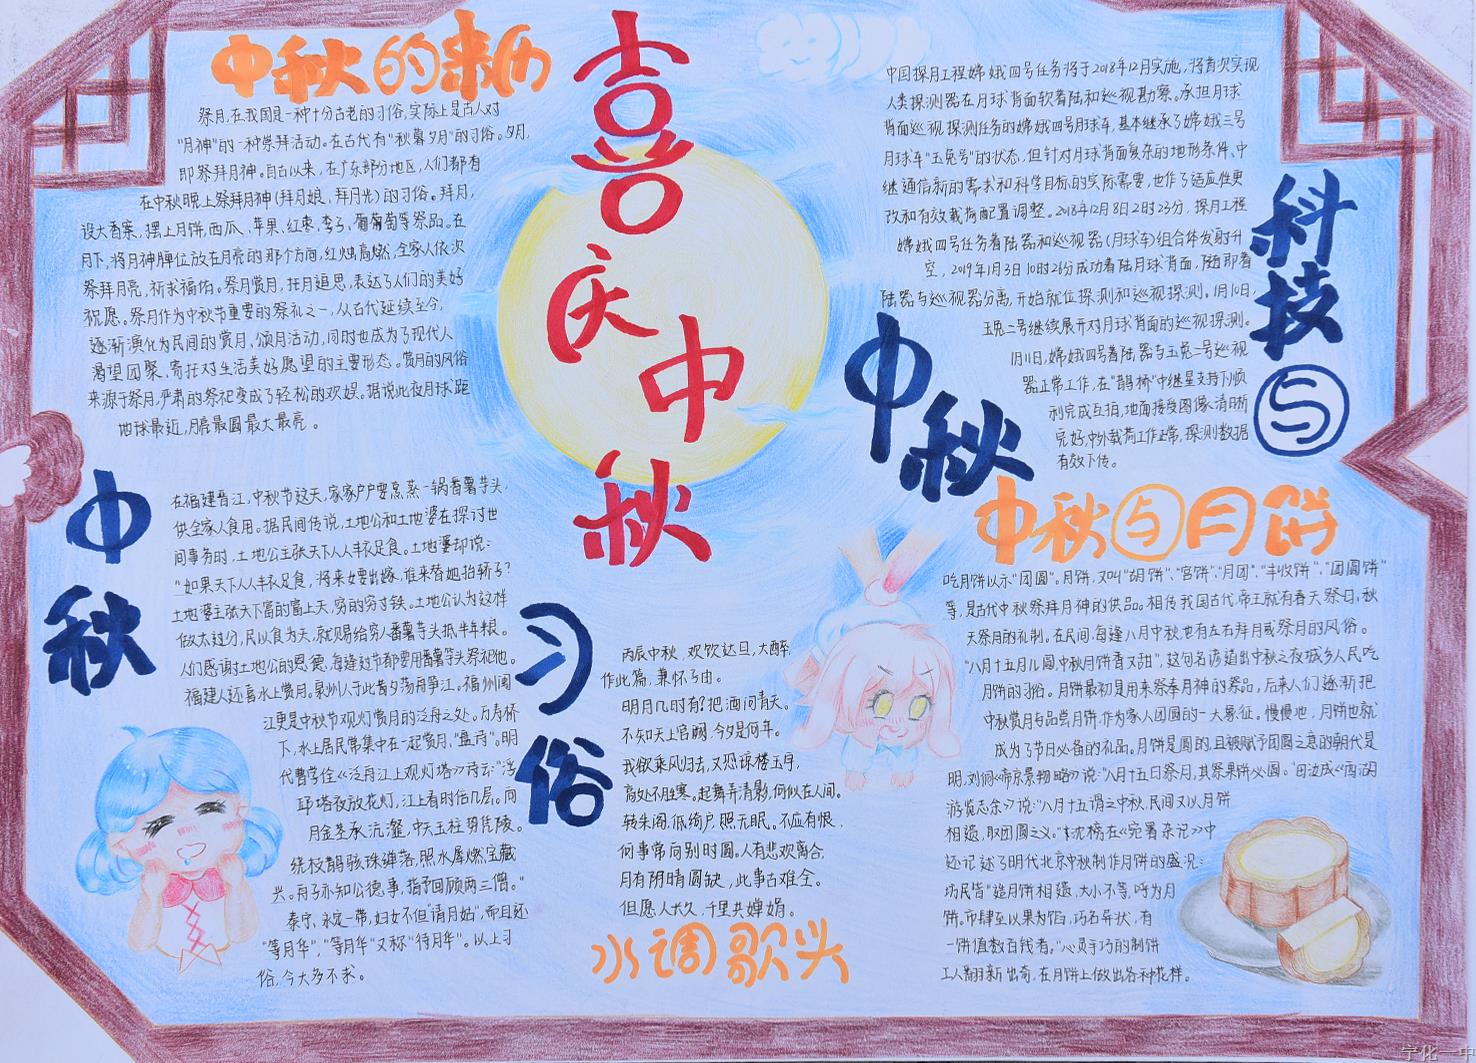 喜庆中秋
中秋的来历
祭月,在我国是一种十分古老的习俗,实际上是古人对
"月神"的一种崇拜活动。在古代有"秋暮夕月"的习俗。夕月,
即祭拜月神。自古以来,在广东部分地区,人们都有
在中秋晚上祭拜月神(拜月娘,拜月光)的习俗。拜月,
设大香案,摆上月饼、西瓜、苹果、红枣、李子、葡萄等祭品。在
月下,将月神牌位放在月亮的那个方向,红烛高燃,全家人依次
祭拜月亮,祈求福佑。祭月赏月,托月追思,表达了人们的美好
祝愿。祭月作为中秋节重要的祭礼之一,从古代延续至今,
逐渐演化为民间的赏月、颂月活动,同时也成为了现代人
渴望团聚、寄托对生活美好愿望的主要形态。赏月的风俗
来源于祭月,严肃的祭祀变成了轻松的欢娱。据说此夜月球距
地球最近,月亮最圆最大最亮。
中秋习俗
在福建晋江,中秋节这天,家家户户要烹蒸一锅番薯芋头,
供全家人食用。据民间传说,土地公和土地婆在探讨世
间事务时,土地公主张天下人人丰衣足食。土地婆却说:
"如果天下人人丰衣足食,将来女要出嫁,谁来替她抬轿子?
土地婆主张天下富的富上天,穷的穷寸铁。土地公认为这样
做太过分,民以食为天,就赐给穷人番薯芋头抵半年粮。
人们感谢土地公的恩德,每逢过节都要用番薯芋头祭祀他。
福建人还喜水上赏月。泉州人于此昔夕荡舟笋江。福州闽
江更是中秋节观灯赏月的泛舟之处。万寿桥
下,水上居民常集中在一起赏月,"盘诗"。明
代曹学佺《泛舟江上观灯塔》诗云"浮
塔夜放花灯,江上看时倍几层。向
月金茎承沆瀣,中天玉柱势凭陵。
绕枝鹊骇珠蝉落,照水犀燃宝藏
兴。舟子亦知公德事,指予回顾两三僧。"
泰宁、永定一带,妇女不但"请月姑",而且还
"等月华","等月华"又称"待月华"。以上习
俗,今大多不求。
丙辰中秋,欢饮达旦,大醉,
作此篇,兼怀子由。
明月几时有?把酒问青天。
不知天上宫阙,今夕是何年。
我欲乘风归去,又恐琼楼玉宇,
高处不胜寒。起舞弄清影,何似在人间。
转朱阁,低绮户,照无眠。不应有恨,
何事常向别时圆。人有悲欢离合,
月有阴晴圆缺,此事古难全。
但愿人长久,千里共婵娟。
水调歌头
科技与中秋
中国探月工程嫦娥四号任务将于2018年12月实施,将首次实现
人类探测器在月球背面软着陆和巡视勘察。承担月球
背面巡视探测任务的嫦娥四号月球车,基本继承了嫦娥三号
月球车"玉兔号"的状态,但针对月球背面复杂的地形条件、中
继通信新的需求和科学目标的实际需要,也作了适应性更
改和有效载荷配置调整。2018年12月8日2时23分,探月工程
嫦娥四号任务着陆器和巡视器(月球车)组合体发射升
空,2019年1月3日10时26分成功着陆月球背面,随即着
陆器与巡视器分离,开始就位探测和巡视探测。1月10日,
玉兔二号继续展开对月球背面的巡视探测。
1月11日,嫦娥四号着陆器与玉兔二号巡视
器正常工作,在"鹊桥"中继星支持下顺
利完成互拍,地面接受图像清晰
完好,中外载荷工作正常,探测数据
有效下传。
中秋与月饼
吃月饼以示"团圆"。月饼,又叫"胡饼"、"宫饼"、"月团"、"丰收饼"、"团圆饼"
等,是古代中秋祭拜月神的供品。相传我国古代帝王就有春天祭日,秋
天祭月的礼制。在民间,每逢八月中秋,也有左右拜月或祭月的风俗。
"八月十五月儿圆,中秋月饼香又甜",这句名谚道出中秋之夜城乡人民吃
月饼的习俗。月饼最初是用来祭奉月神的祭品,后来人们逐渐把
中秋赏月与品尝月饼,作为家人团圆的一大象征。慢慢地,月饼也就
成为了节日必备的礼品。月饼是圆的,且被赋予团圆之意的朝代是
明,刘侗《帝京景物略》说:"八月十五日祭月,其祭果饼必圆。"田汝成《西湖
游览志余》说:"八月十五谓之中秋,民间又以月饼
相遗,取团圆之义。"沈榜在《宛署杂记》中
还记述了明代北京中秋制作月饼的盛况:
坊民皆"造月饼相遗,大小不等,呼为月
饼。市肆至以果为馅,巧名异状,有
一饼值数百钱者。"心灵手巧的制饼
工人翻新出奇,在月饼上做出各种花样。